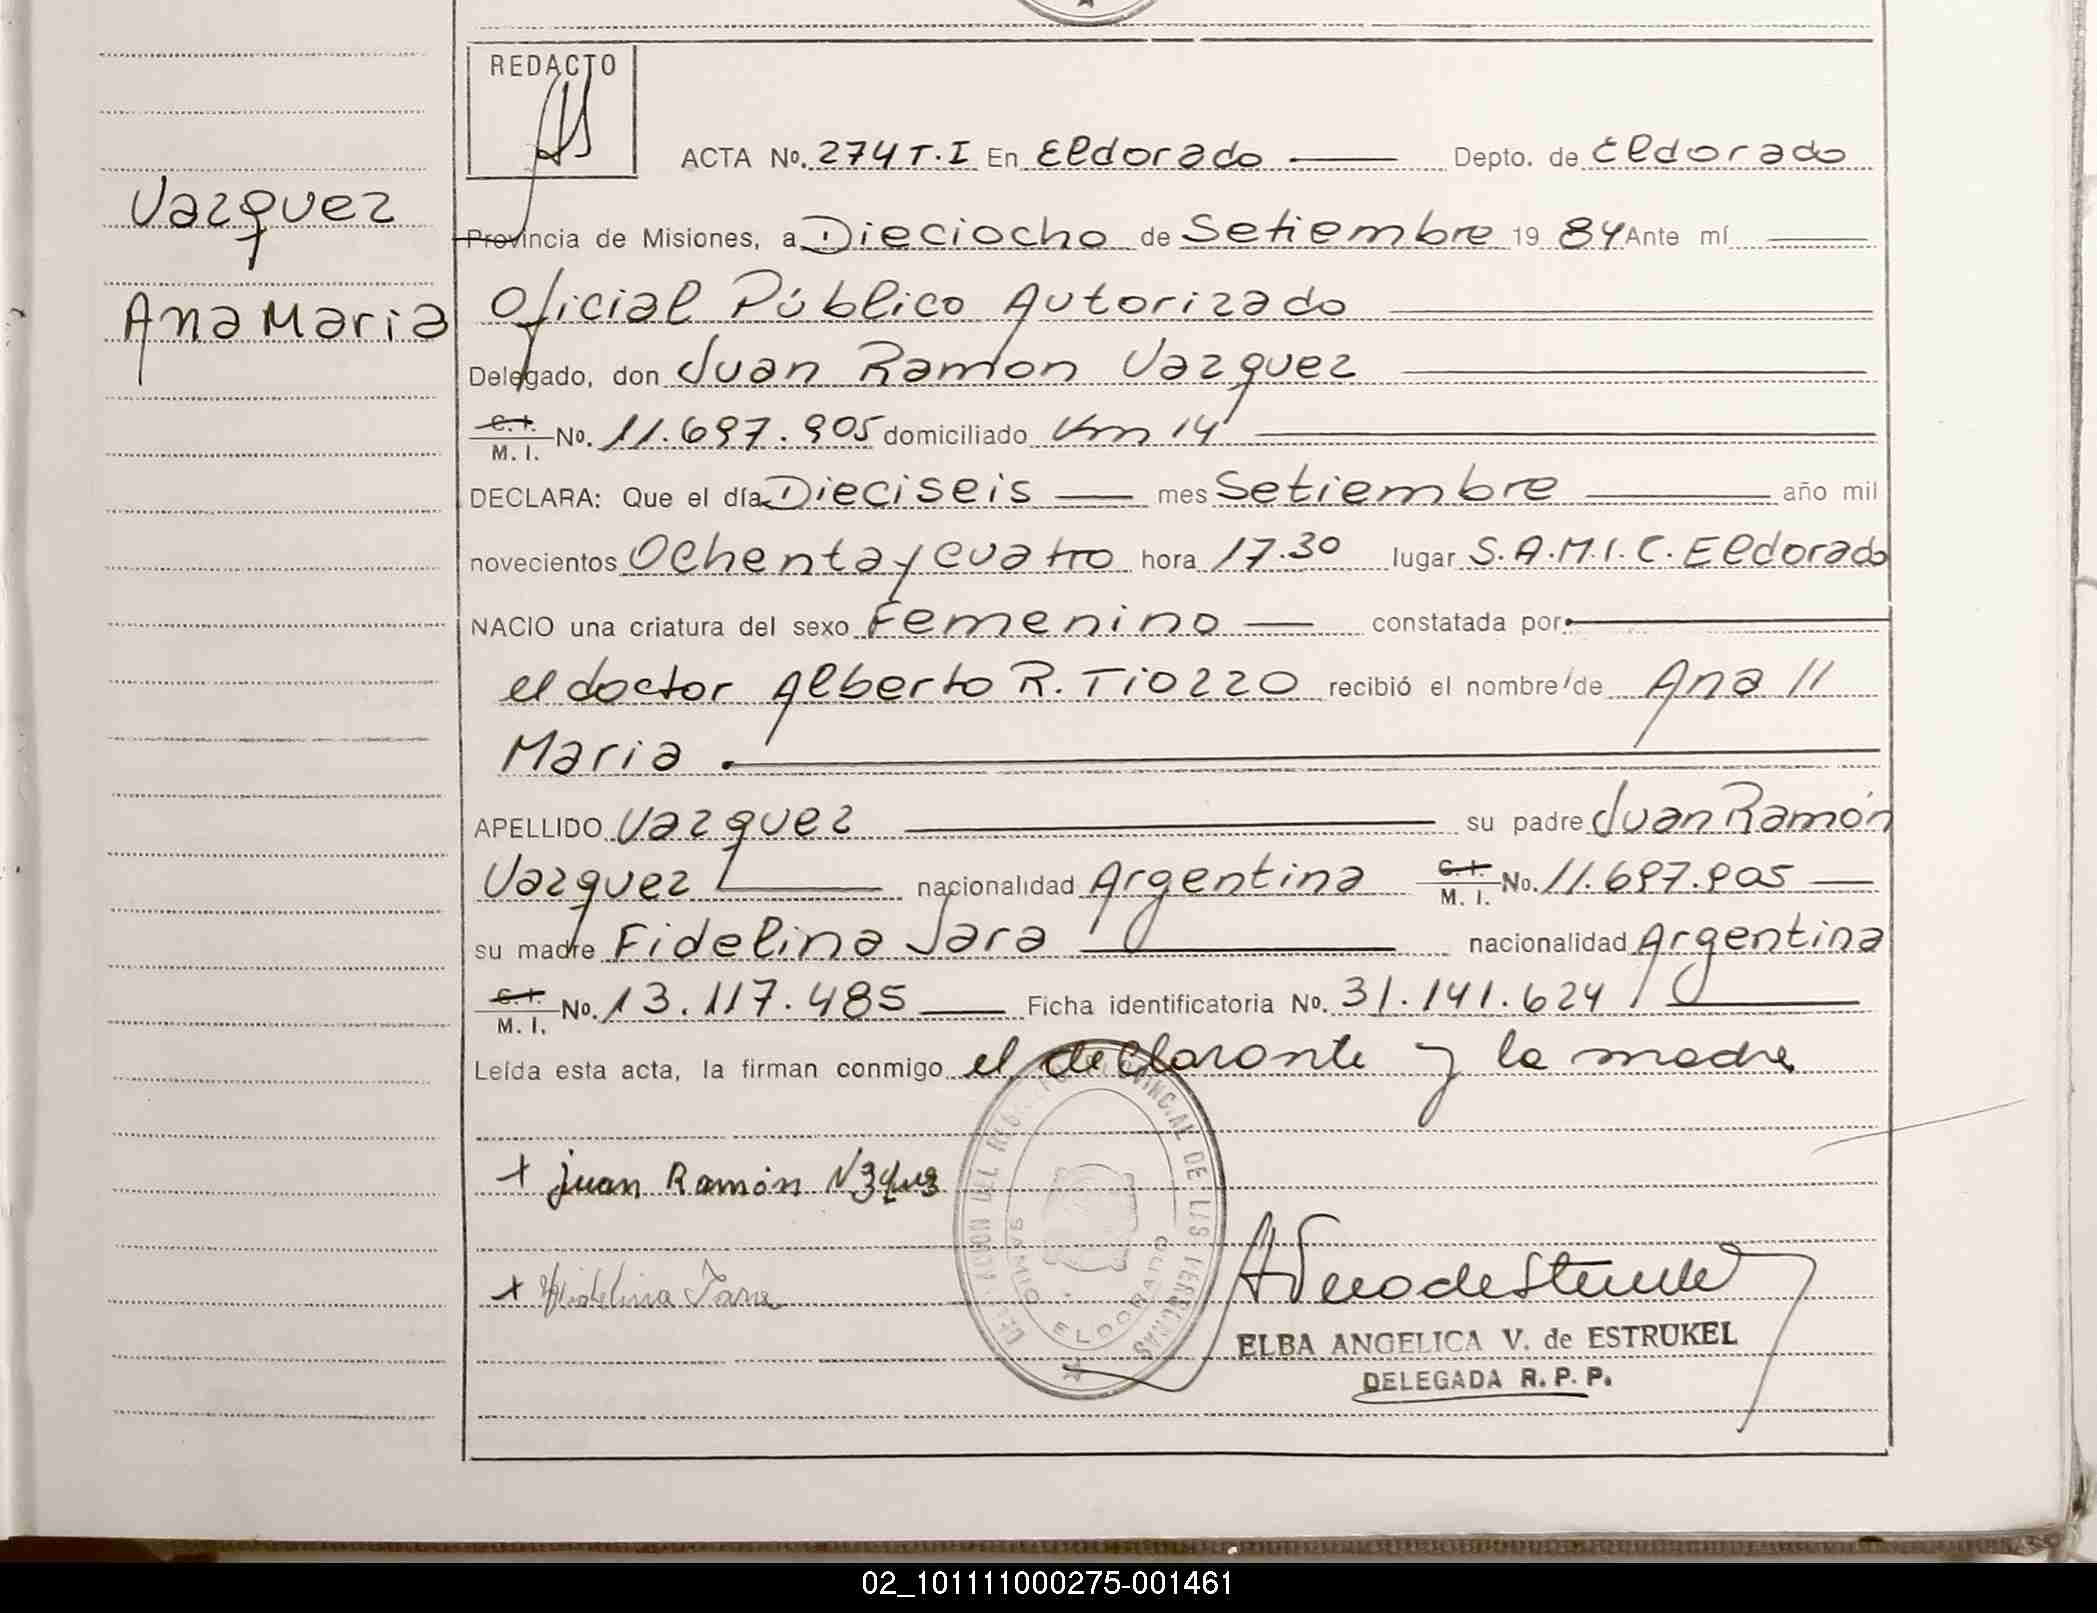 REDACTO
ACTA No. 274 T.I En Eldorado Depto. de Eldorado
Vazquez
Provincia de Misiones, a Dieciocho de Setiembre 19 84 Ante mí
Ana Maria
Oficial Público Autorizado
Delegado, don Juan Ramon Vazquez
C.I. M.I. No. 11.697.905 domiciliado Km 14
DECLARA: Que el día Dieciseis mes Setiembre año mil
novecientos Ochenta y cuatro hora 17.30 lugar S.A.M.I.C. Eldorado
NACIO una criatura del sexo Femenino constatada por
el doctor Alberto R. Tiozzo recibió el nombre de Ana //
Maria
APELLIDO Vazquez su padre Juan Ramón
Vazquez nacionalidad Argentina C.I. M.I. No. 11.697.905
su madre Fidelina Jara nacionalidad Argentina
C.I. M.I. No. 13.117.485 Ficha identificatoria No. 31.141.624
Leída esta acta, la firman conmigo el declarante y la madre
+ juan Ramón
+ Fidelina Jara
PROVINCIAL DE LAS PERSONAS
SAMIC ELDORADO
ELBA ANGELICA V. de ESTRUKEL
DELEGADA R. P. P.
02_101111000275-001461